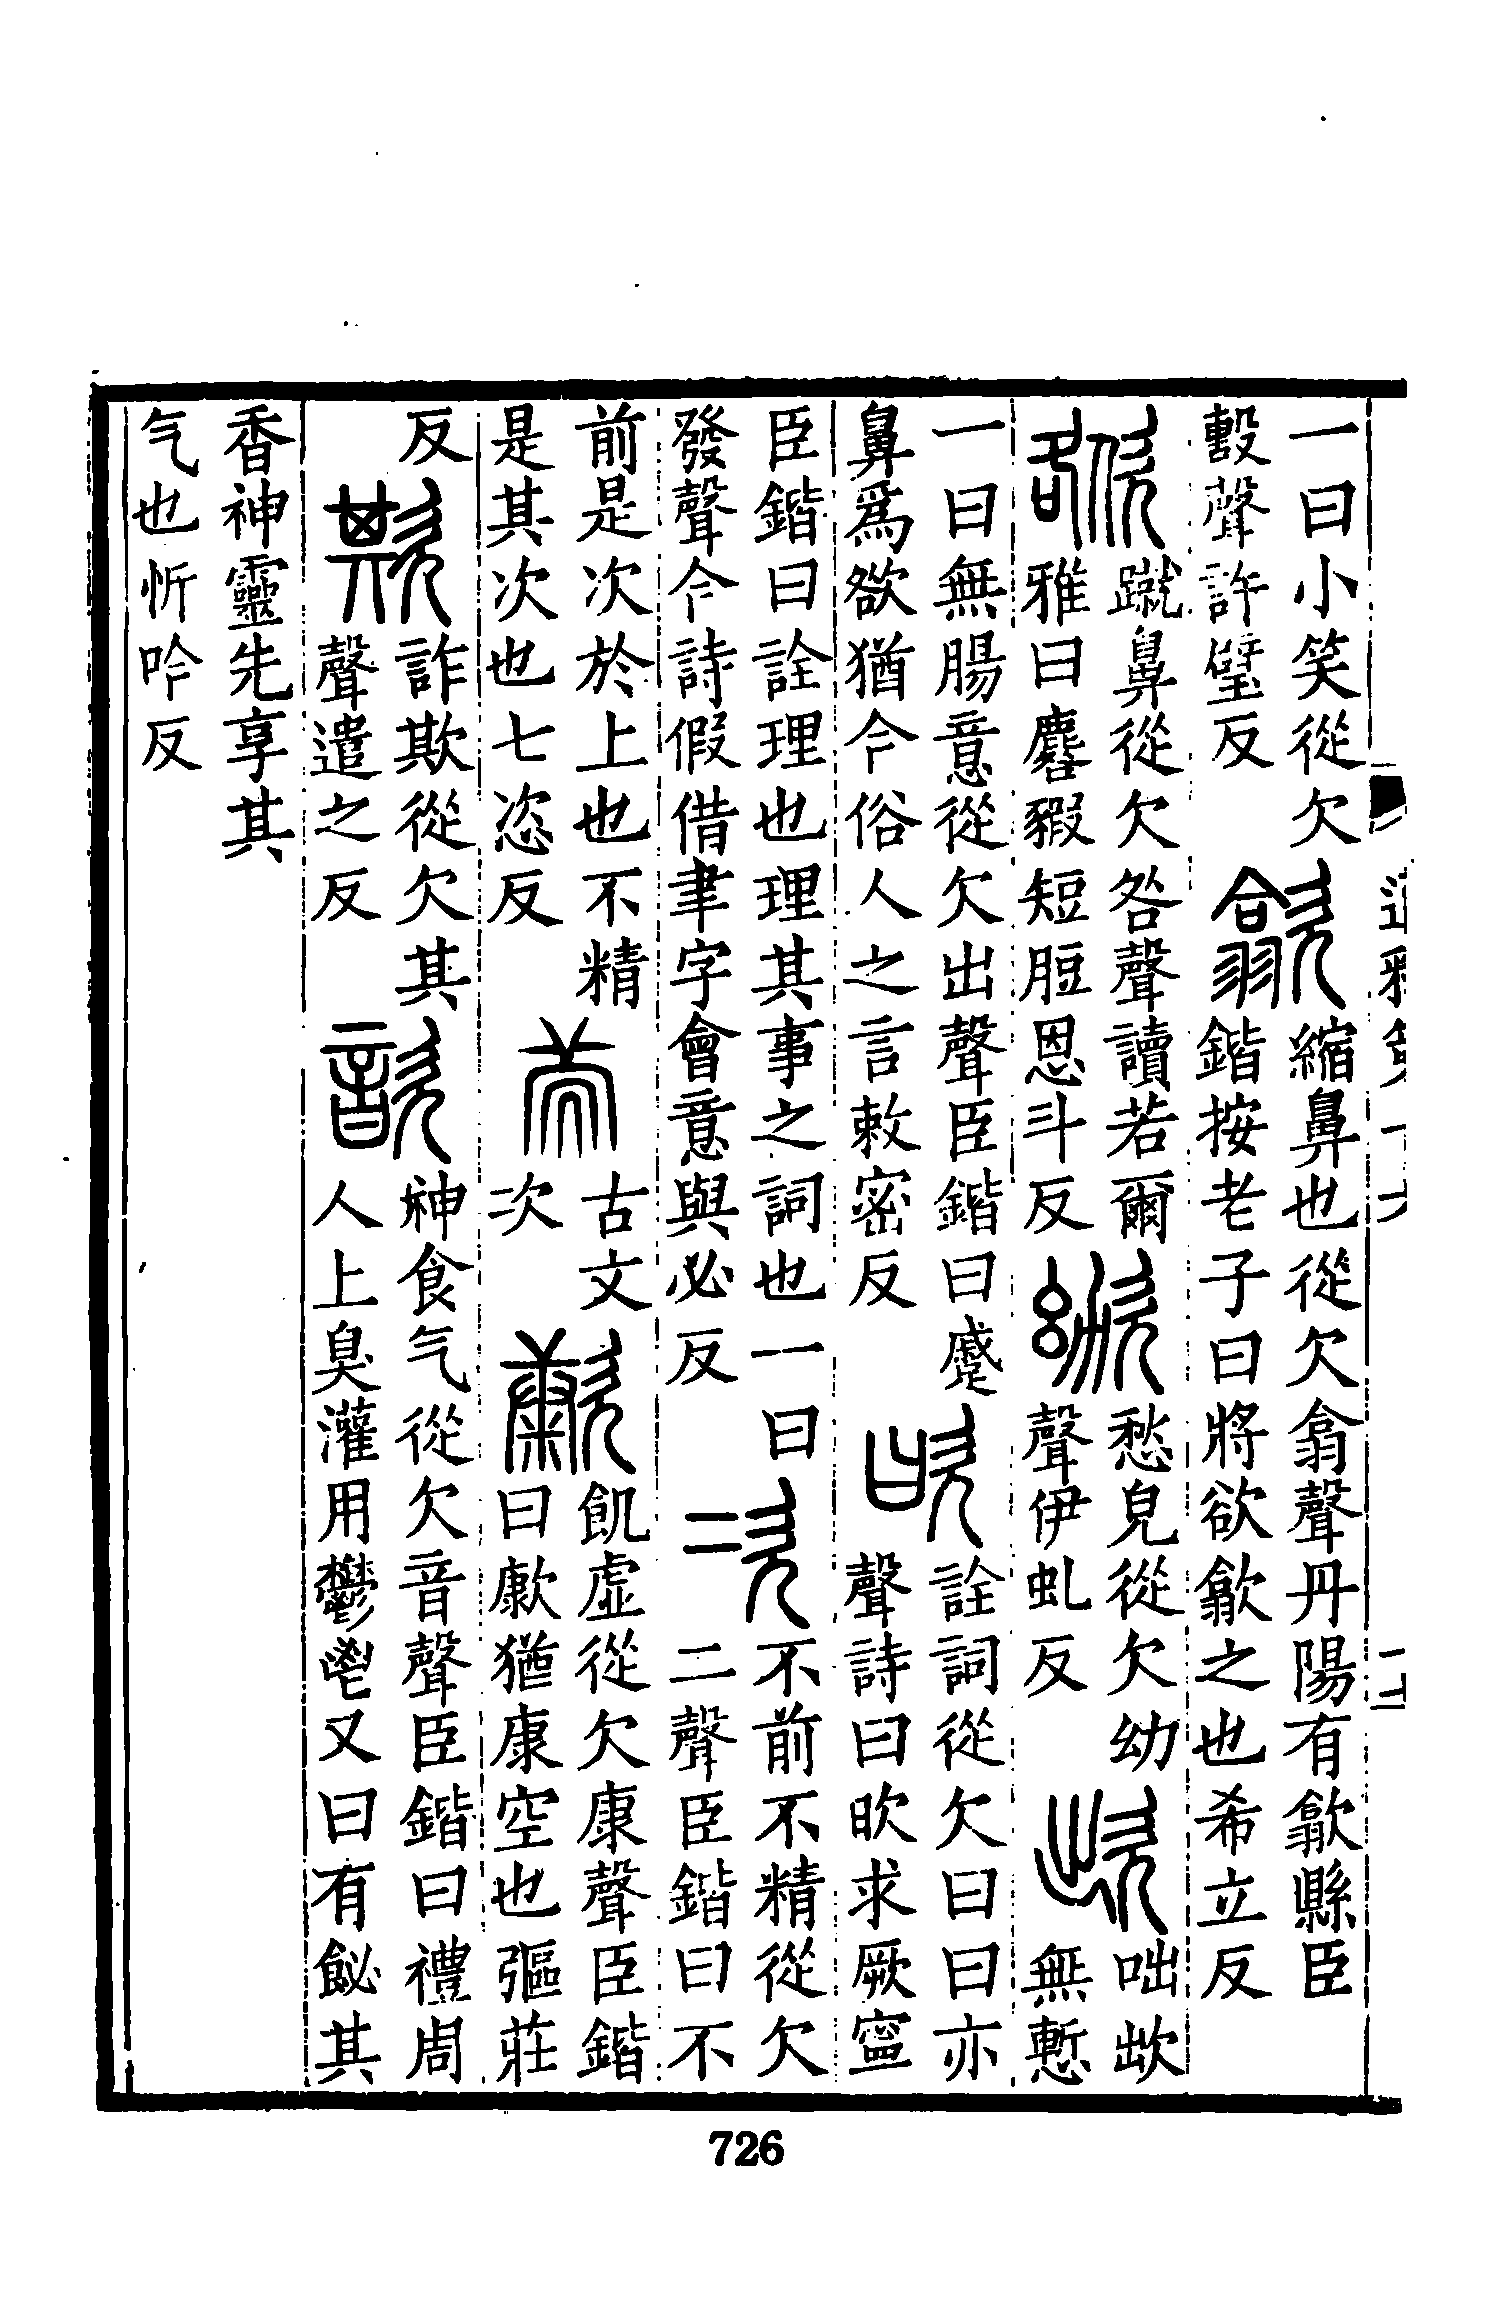 一曰小笑從欠
毄聲許璧反
歙
縮鼻也從欠翕聲丹陽有歙縣臣
鍇按老子曰將欲歙之也希立反
蹴鼻從欠咎聲讀若爾
雅曰麔豭短脰恩斗反
愁皃從欠幼
聲伊虬反
欪
咄欪無慙
一曰無腸意從欠出聲臣鍇曰蹙
鼻爲欲猶今俗人之言敕密反
欥
詮詞從欠曰曰亦
聲詩曰欥求厥寍
臣鍇曰詮理也理其事之詞也一曰
發聲今詩假借聿字會意與必反
次
不前不精從欠
二聲臣鍇曰不
前是次於上也不精
是其次也七恣反
古文
次
㱂
飢虛從欠康聲臣鍇
曰㱂猶康空也彄莊
反
欺
詐欺從欠其
聲遣之反
歆
神食气從欠音聲臣鍇曰禮周
人上臭灌用鬱鬯又曰有飶其
香神靈先享其
气也忻吟反
726